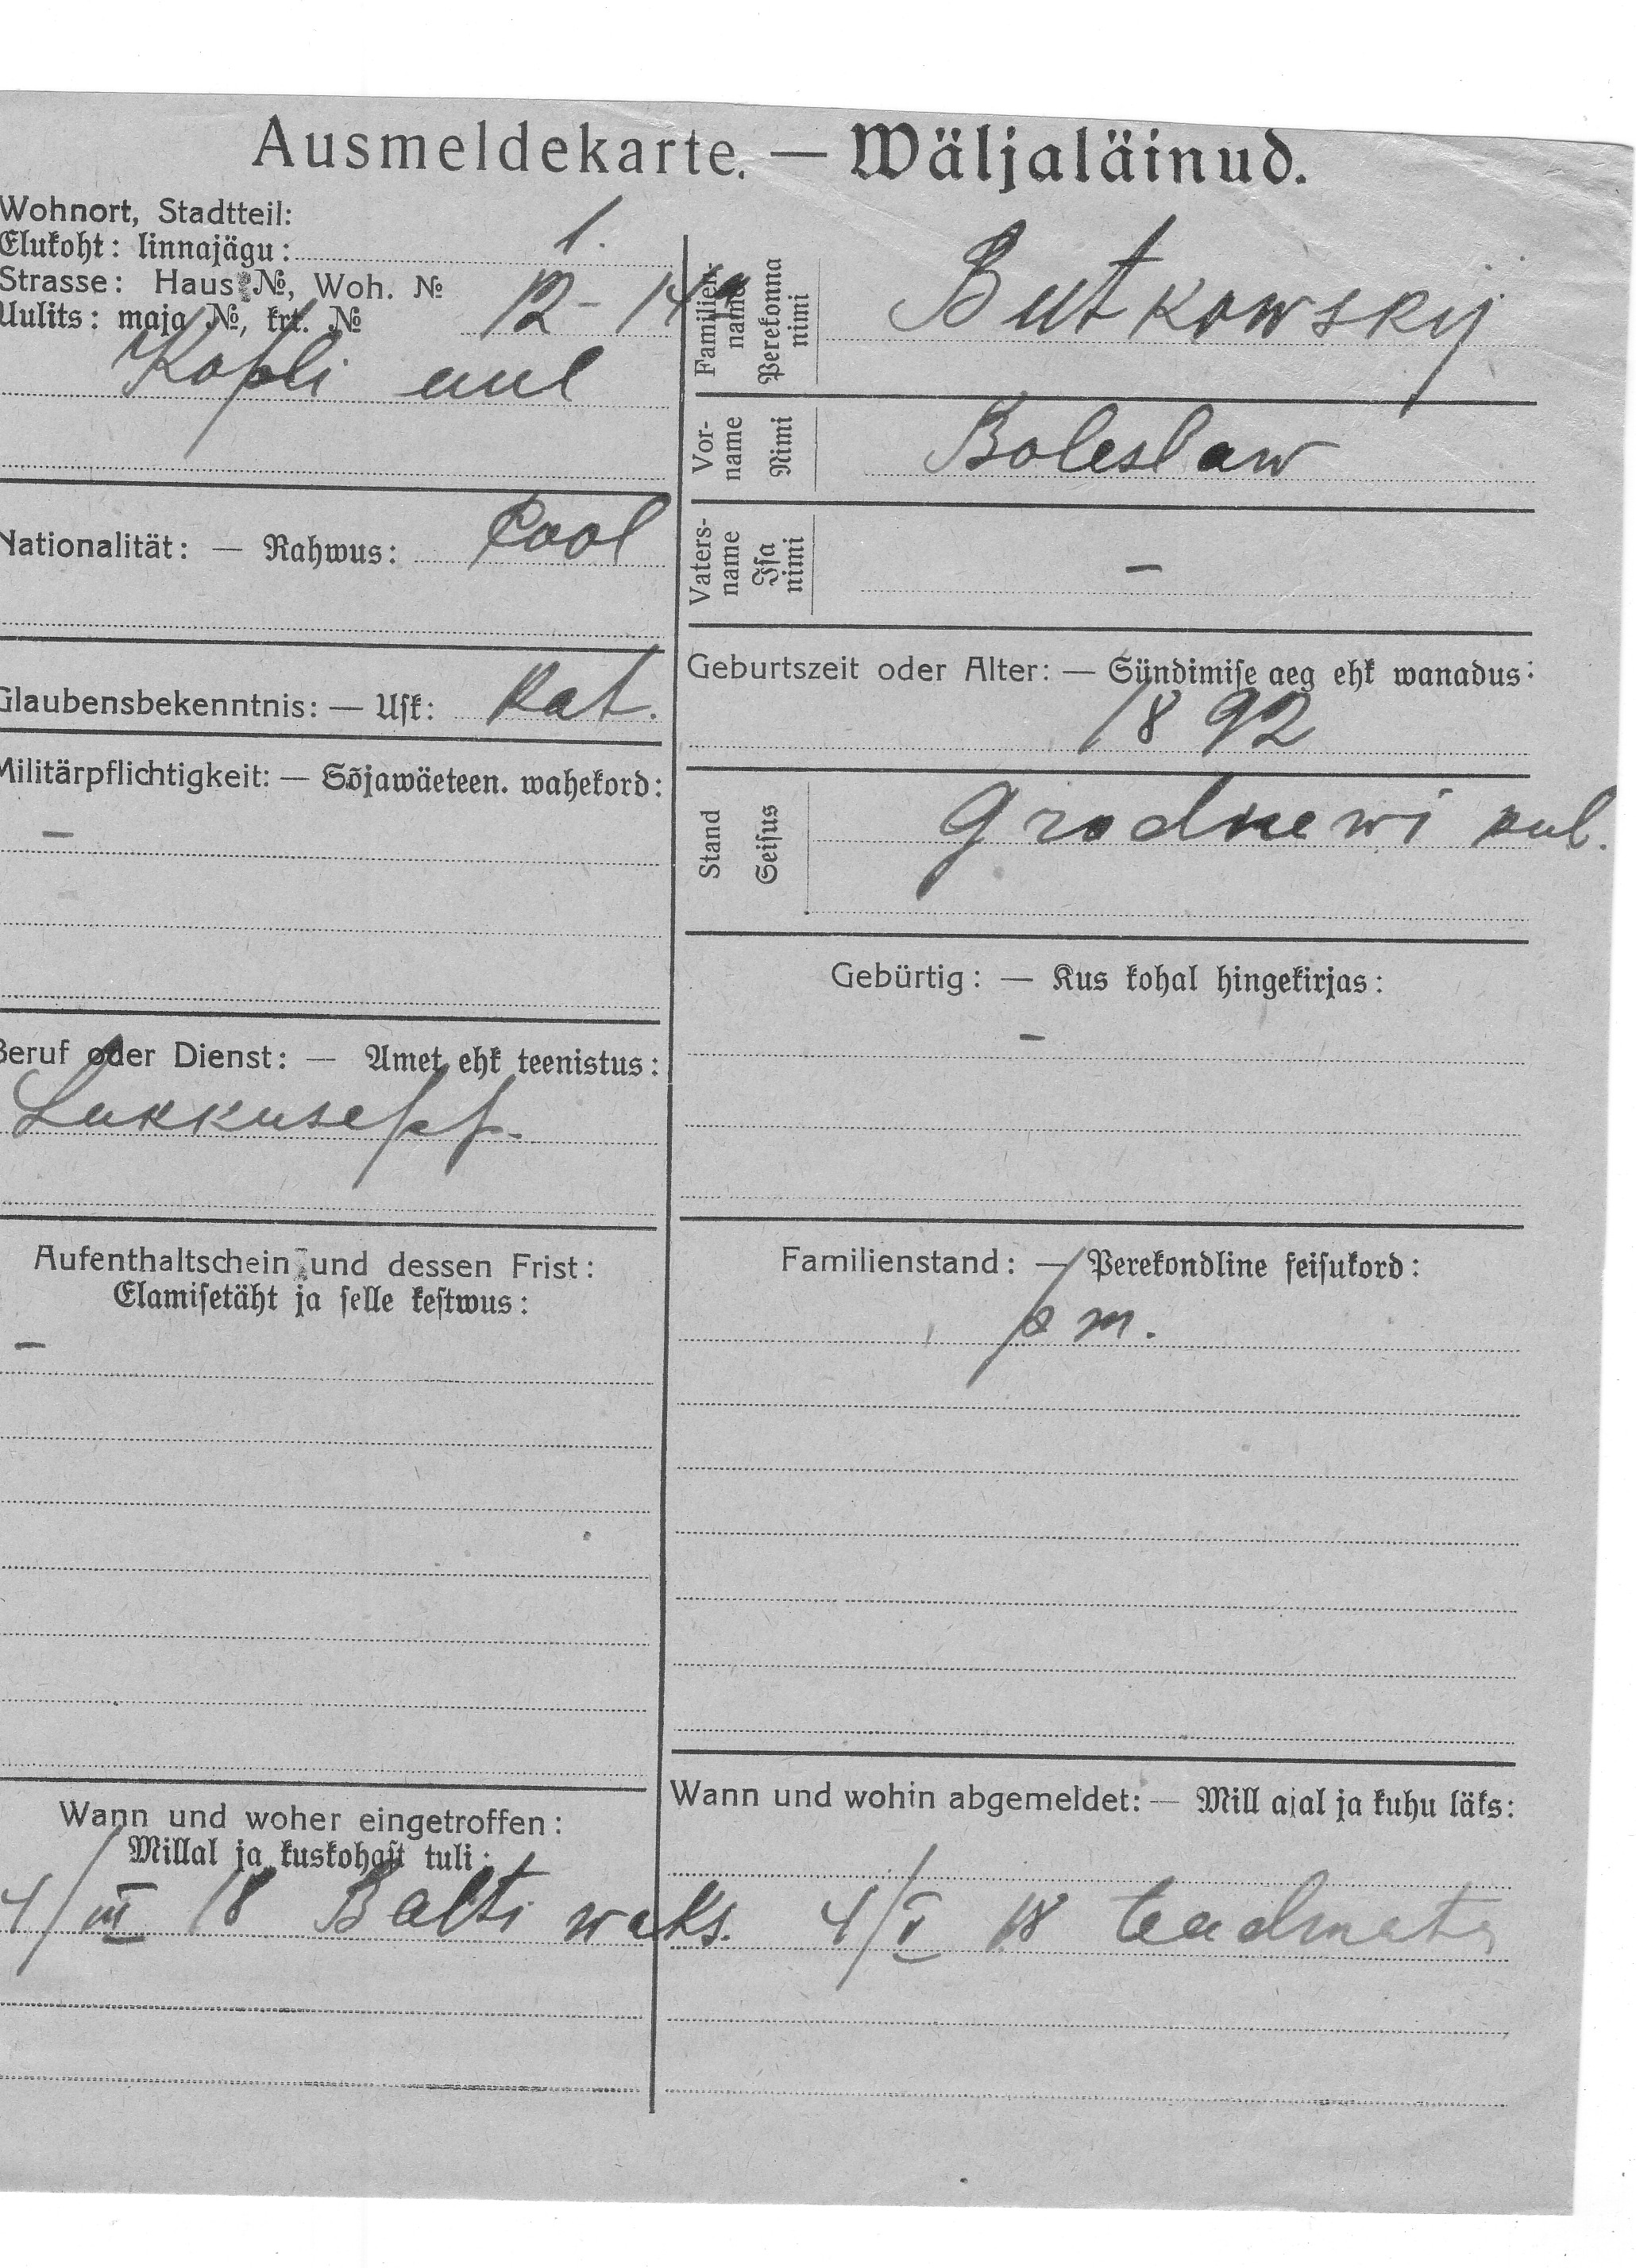 Ausmeldekarte. — Wäljaläinud.
Wohnort, Stadtteil:
Elukoht: linnajägu: 1.
Strasse: Haus №, Woh. №
Uulits: maja №, krt. № 12 - 14a
Kopli uul
Nationalität: — Rahwus: Pool
Glaubensbekenntnis: — Usk: Kat.
Militärpflichtigkeit: — Sõjawäeteen. wahekord:
—
Beruf oder Dienst: — Amet ehk teenistus:
Lukkusepp.
Aufenthaltschein und dessen Frist:
Elamisetäht ja selle kestwus:
—
Wann und woher eingetroffen:
Millal ja kuskohast tuli:
4/III 18 Balti waks.
Familienname
Perekonna nimi
Butkowskij
Vorname
Nimi
Boleslaw
Vatersname
Isa nimi
—
Geburtszeit oder Alter: — Sündimise aeg ehk wanadus:
1892
Stand
Seisus
Grodnewi kub.
Gebürtig: — Kus kohal hingekirjas:
—
Familienstand: — Perekondline seisukord:
p m.
Wann und wohin abgemeldet: — Mill ajal ja kuhu läks:
4/V 18 teadmata